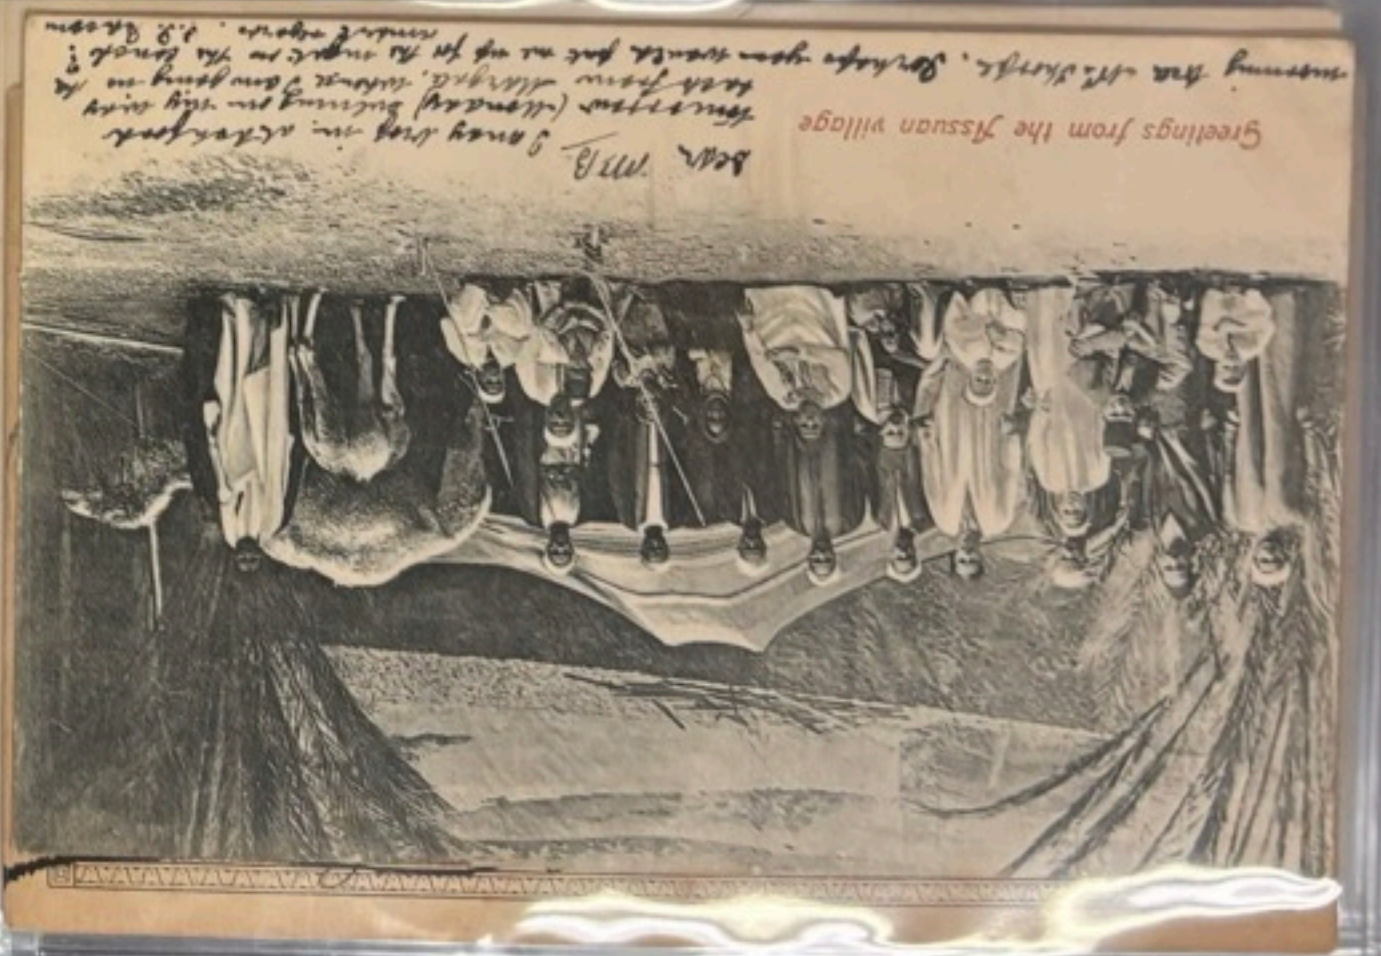 Greetings from the Assuan village
Dear MB
I may drop in at
tomorrow (Monday) evening on my way
back from Margate, where I am going in the
morning Perhaps you would put me up for the night on the couch?
kindest regards.